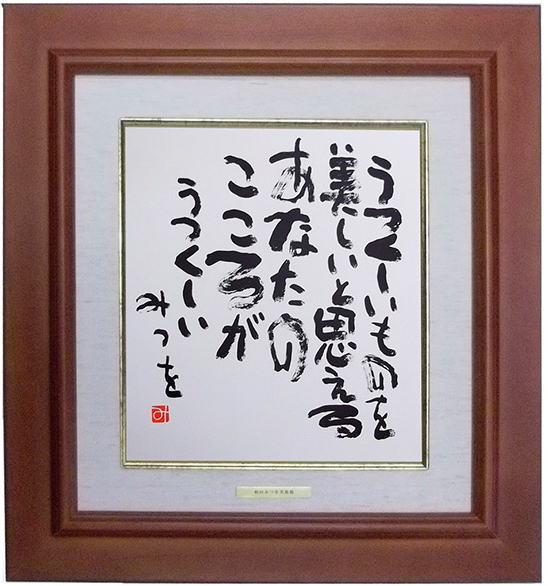 うつくしいものを
美しいと思える
あなたの
こころが
うつくしい
みつを
み
相田みつを美術館